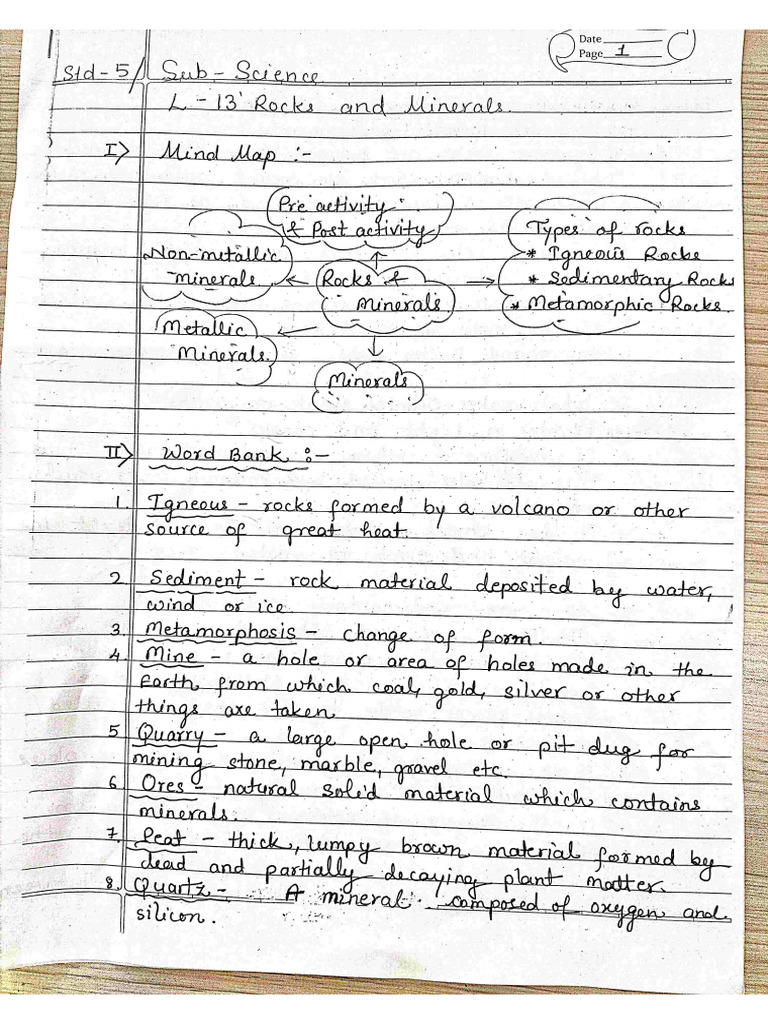 Date
Page 1
Std-5/ Sub-Science
L-13 Rocks and Minerals.
I> Mind Map :-
Pre activity
& Post activity
Types of rocks
* Igneous Rocks
* Sedimentary Rocks
* Metamorphic Rocks.
Non-metallic
minerals
Rocks &
minerals
Metallic
Minerals.
Minerals
II> Word Bank :-
1. Igneous - rocks formed by a volcano or other
source of great heat.
2. Sediment - rock material deposited by water,
wind or ice.
3. Metamorphosis - change of form.
4. Mine - a hole or area of holes made in the
Earth from which coal, gold, silver or other
things are taken.
5. Quarry - a large open hole or pit dug for
mining stone, marble, gravel etc.
6. Ores - natural solid material which contains
minerals.
7. Peat - thick, lumpy brown material formed by
dead and partially decaying plant matter.
8. Quartz - A mineral composed of oxygen and
silicon.